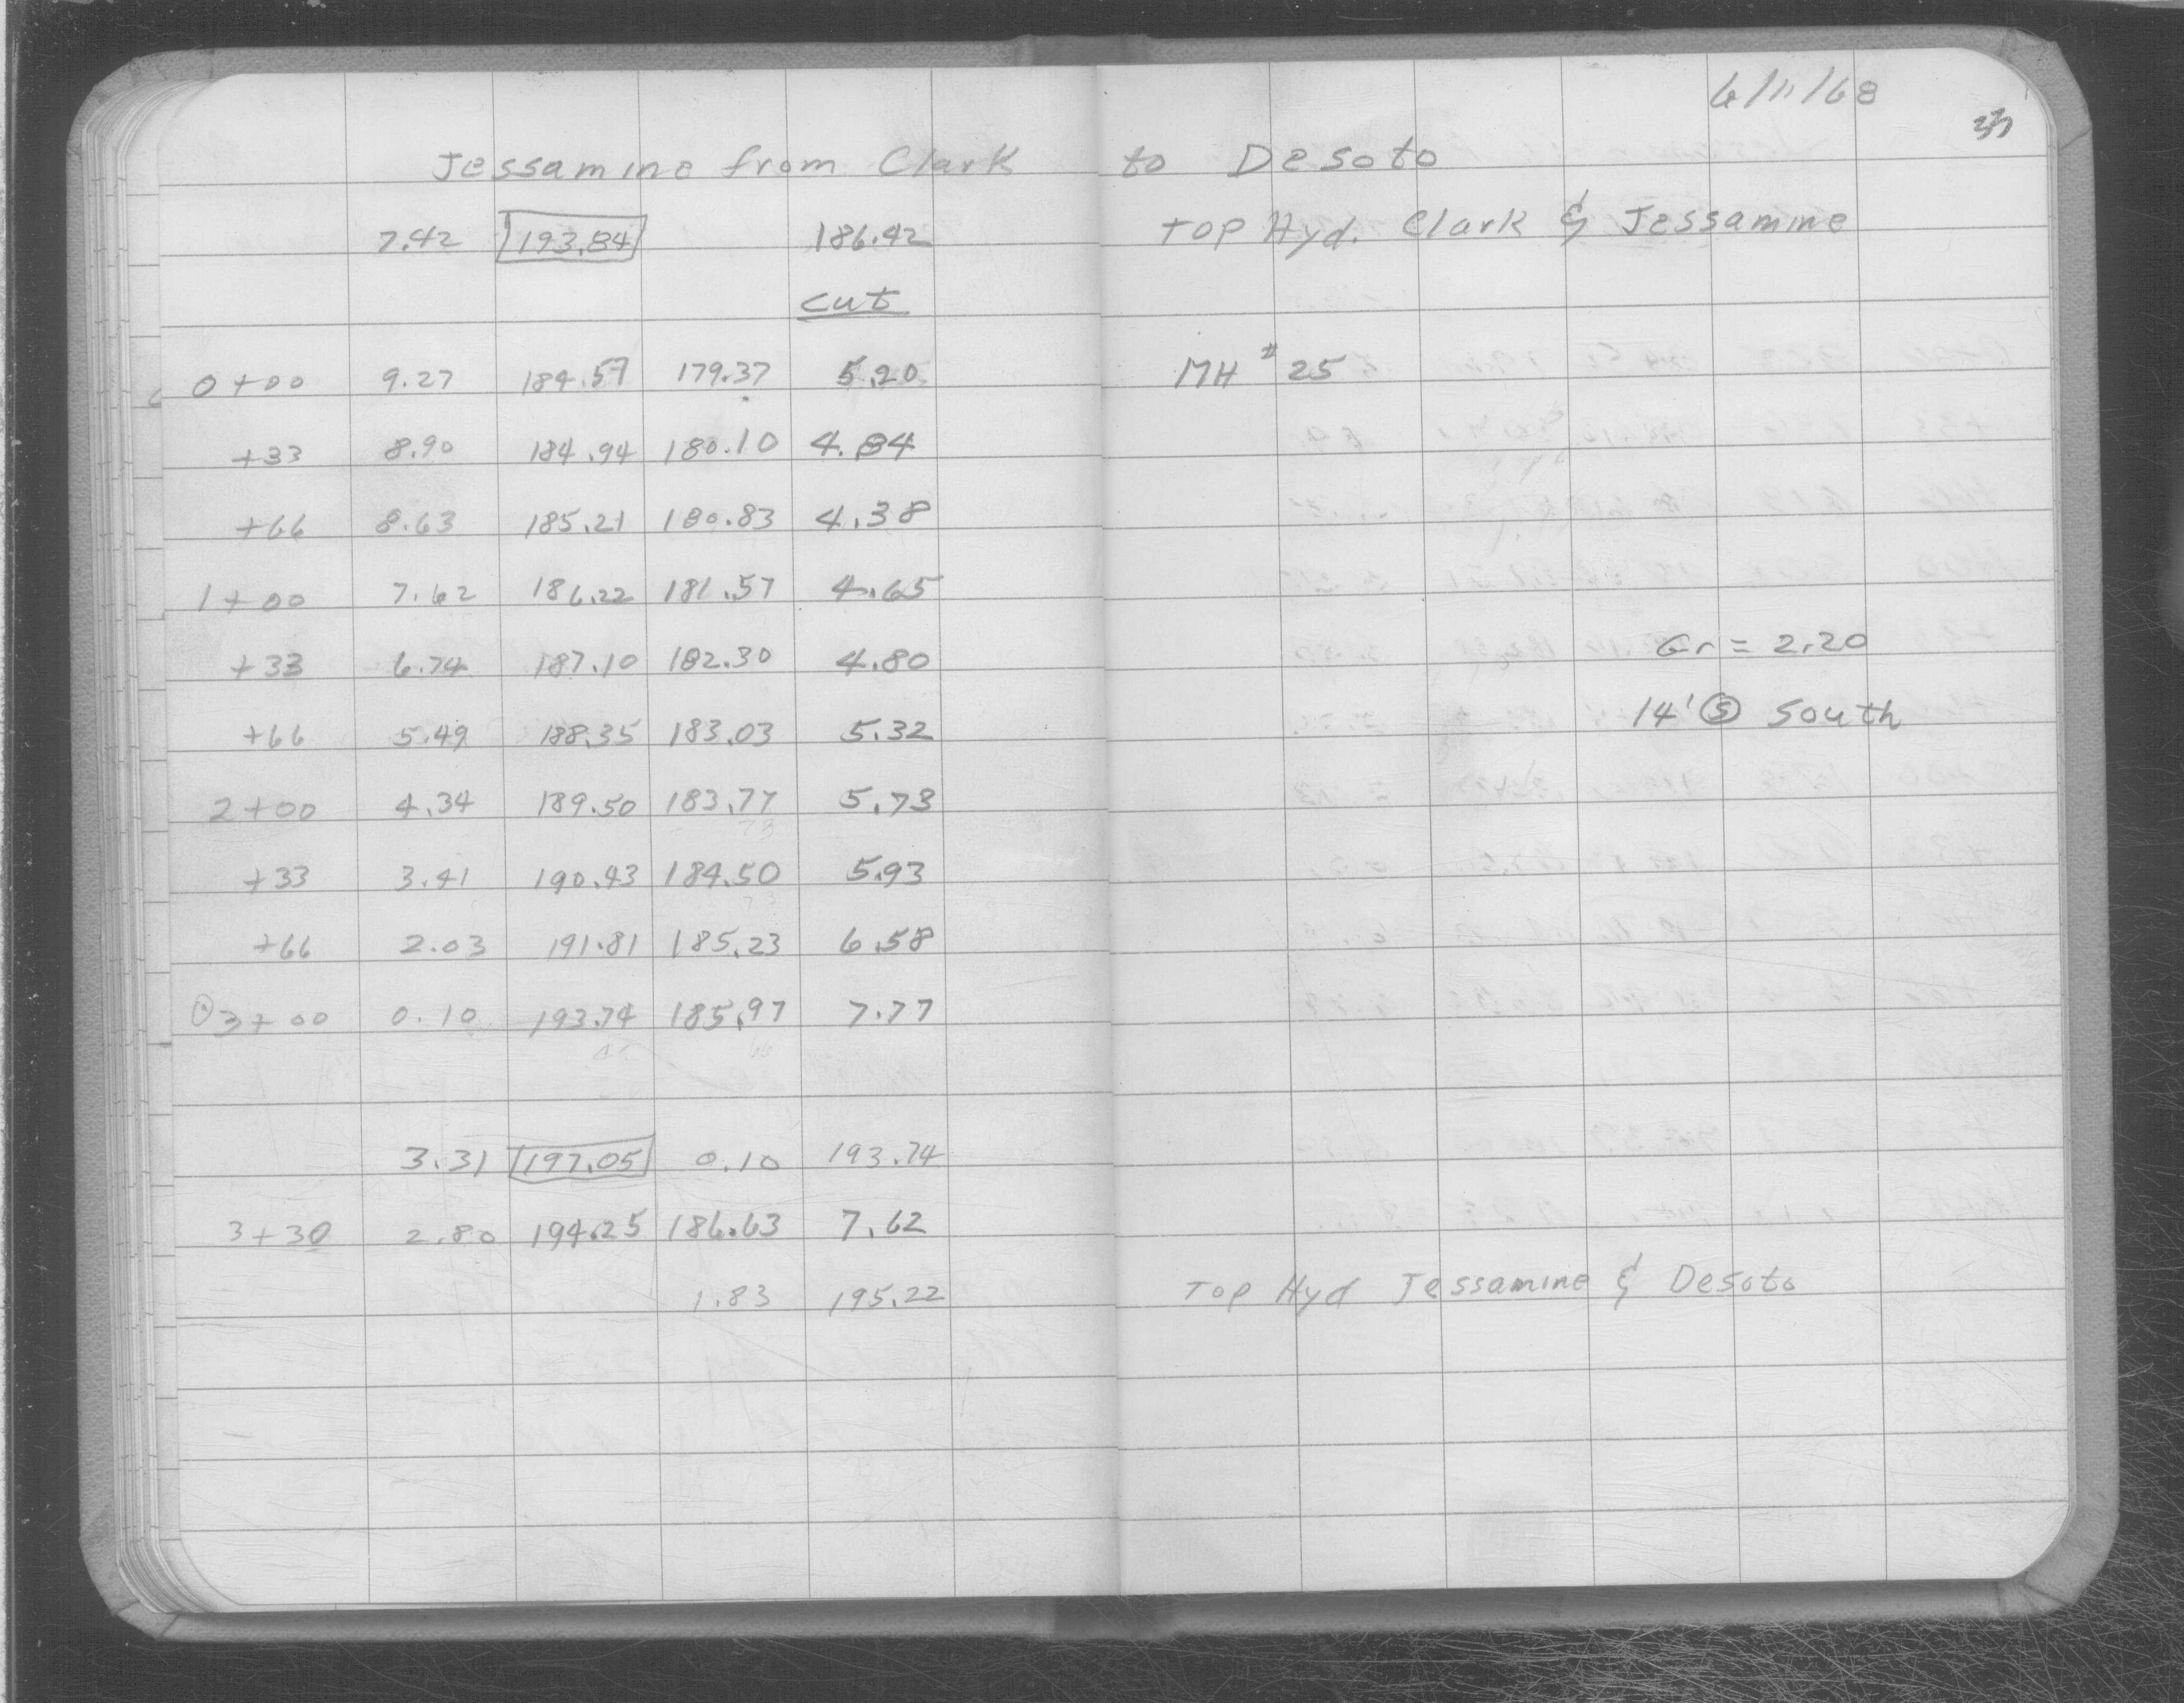 6/11/68
33
Jessamine from Clark to Desoto
7.42 193.84 186.42 Top Hyd. Clark & Jessamine
cut
0+00 9.27 184.57 179.37 5.20 MH #25
+33 8.90 184.94 180.10 4.84
+66 8.63 185.21 180.83 4.38
1+00 7.62 186.22 181.57 4.65
+33 6.74 187.10 182.30 4.80 Gr = 2.20
+66 5.49 188.35 183.03 5.32 14' Ⓢ South
2+00 4.34 189.50 183.77 5.73
73
+33 3.41 190.43 184.50 5.93
73
+66 2.03 191.81 185.23 6.58
3+00 0.10 193.74 185.97 7.77
66
3.31 197.05 0.10 193.74
3+30 2.80 194.25 186.63 7.62
1.83 195.22 Top Hyd Jessamine & Desoto